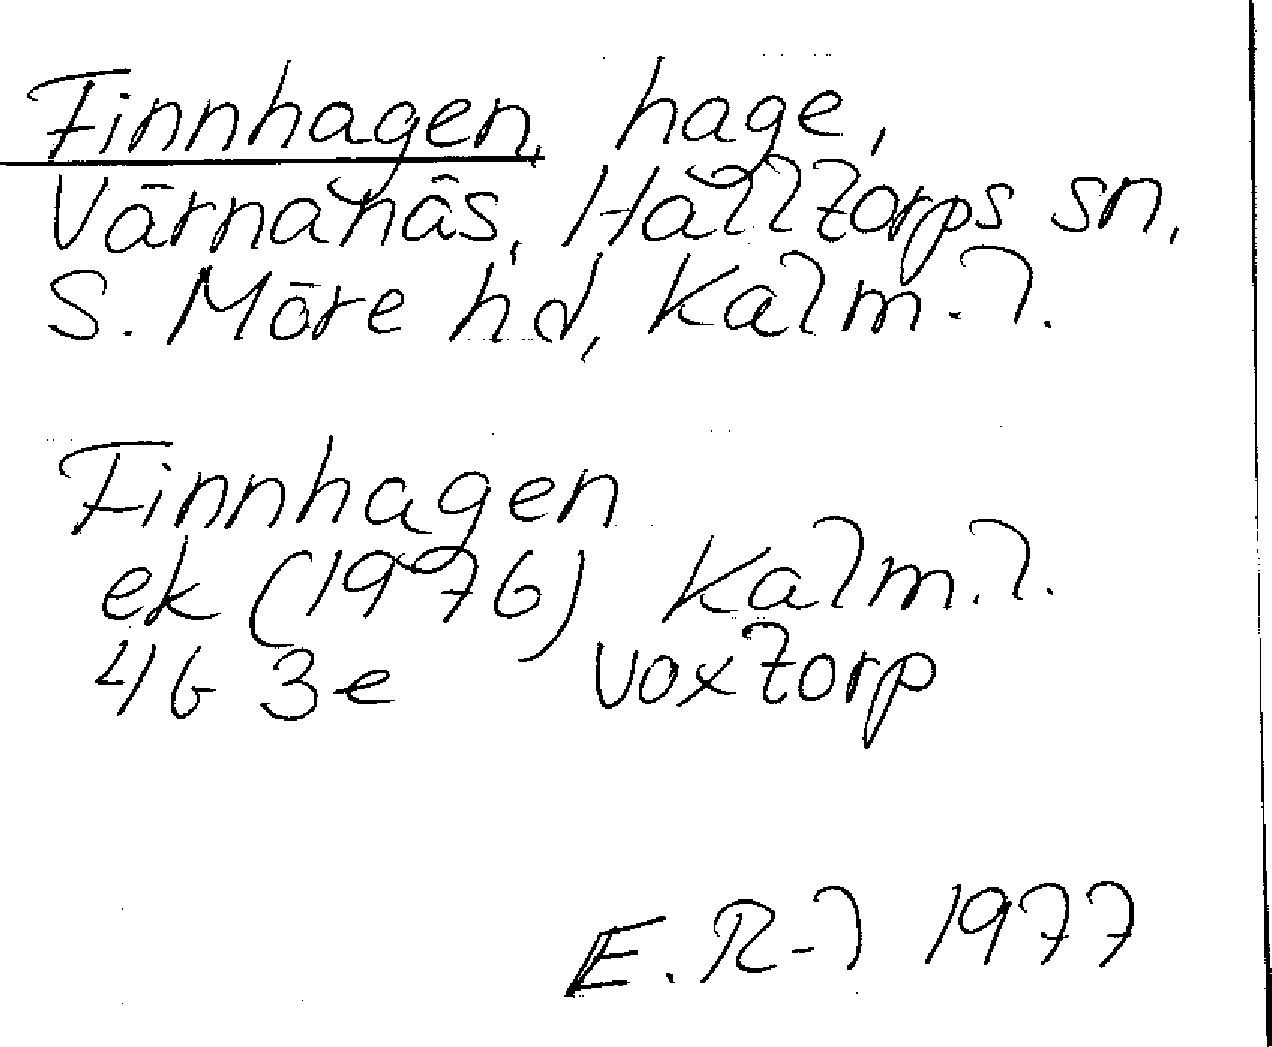 Finnhagen, hage,
Värnanäs, Halltorps sn,
S. Möre hd, Kalm. l.
Finnhagen
ek (1976) Kalm. l.
4G 3e Voxtorp
E. R-l 1977